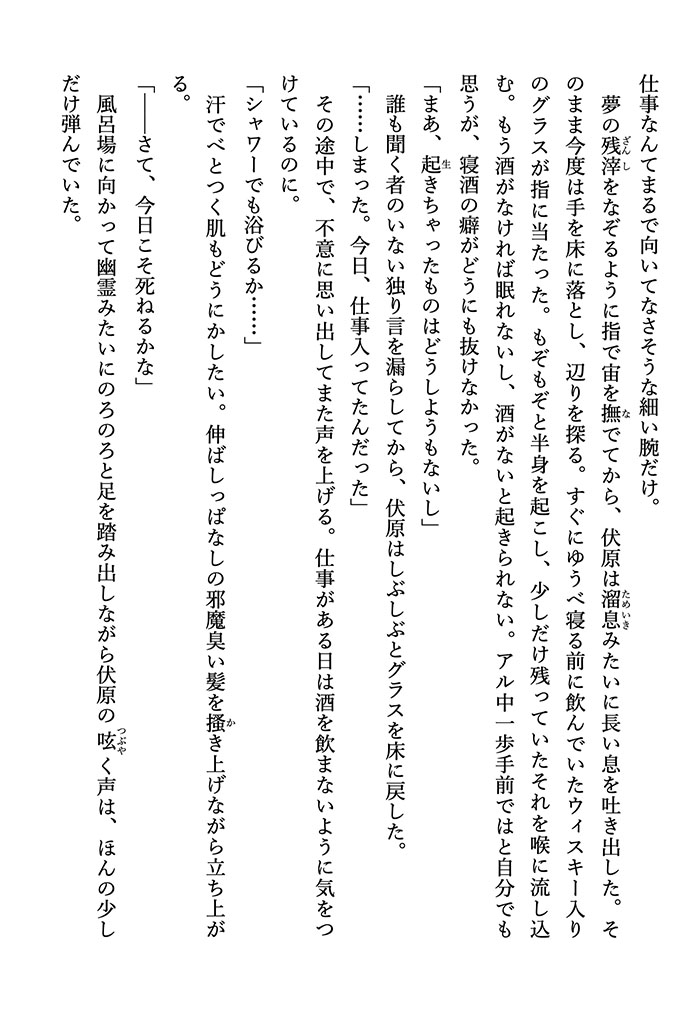 仕事なんてまるで向いてなさそうな細い腕だけ。
　夢の残滓をなぞるように指で宙を撫でてから、伏原は溜息みたいに長い息を吐き出した。そ
のまま今度は手を床に落とし、辺りを探る。すぐにゆうべ寝る前に飲んでいたウィスキー入り
のグラスが指に当たった。もぞもぞと半身を起こし、少しだけ残っていたそれを喉に流し込
む。もう酒がなければ眠れないし、酒がないと起きられない。アル中一歩手前ではと自分でも
思うが、寝酒の癖がどうにも抜けなかった。
「まあ、起きちゃったものはどうしようもないし」
　誰も聞く者のいない独り言を漏らしてから、伏原はしぶしぶとグラスを床に戻した。
「……しまった。今日、仕事入ってたんだった」
　その途中で、不意に思い出してまた声を上げる。仕事がある日は酒を飲まないように気をつ
けているのに。
「シャワーでも浴びるか……」
　汗でべとつく肌もどうにかしたい。伸ばしっぱなしの邪魔臭い髪を掻き上げながら立ち上が
る。
「――さて、今日こそ死ねるかな」
　風呂場に向かって幽霊みたいにのろのろと足を踏み出しながら伏原の呟く声は、ほんの少し
だけ弾んでいた。